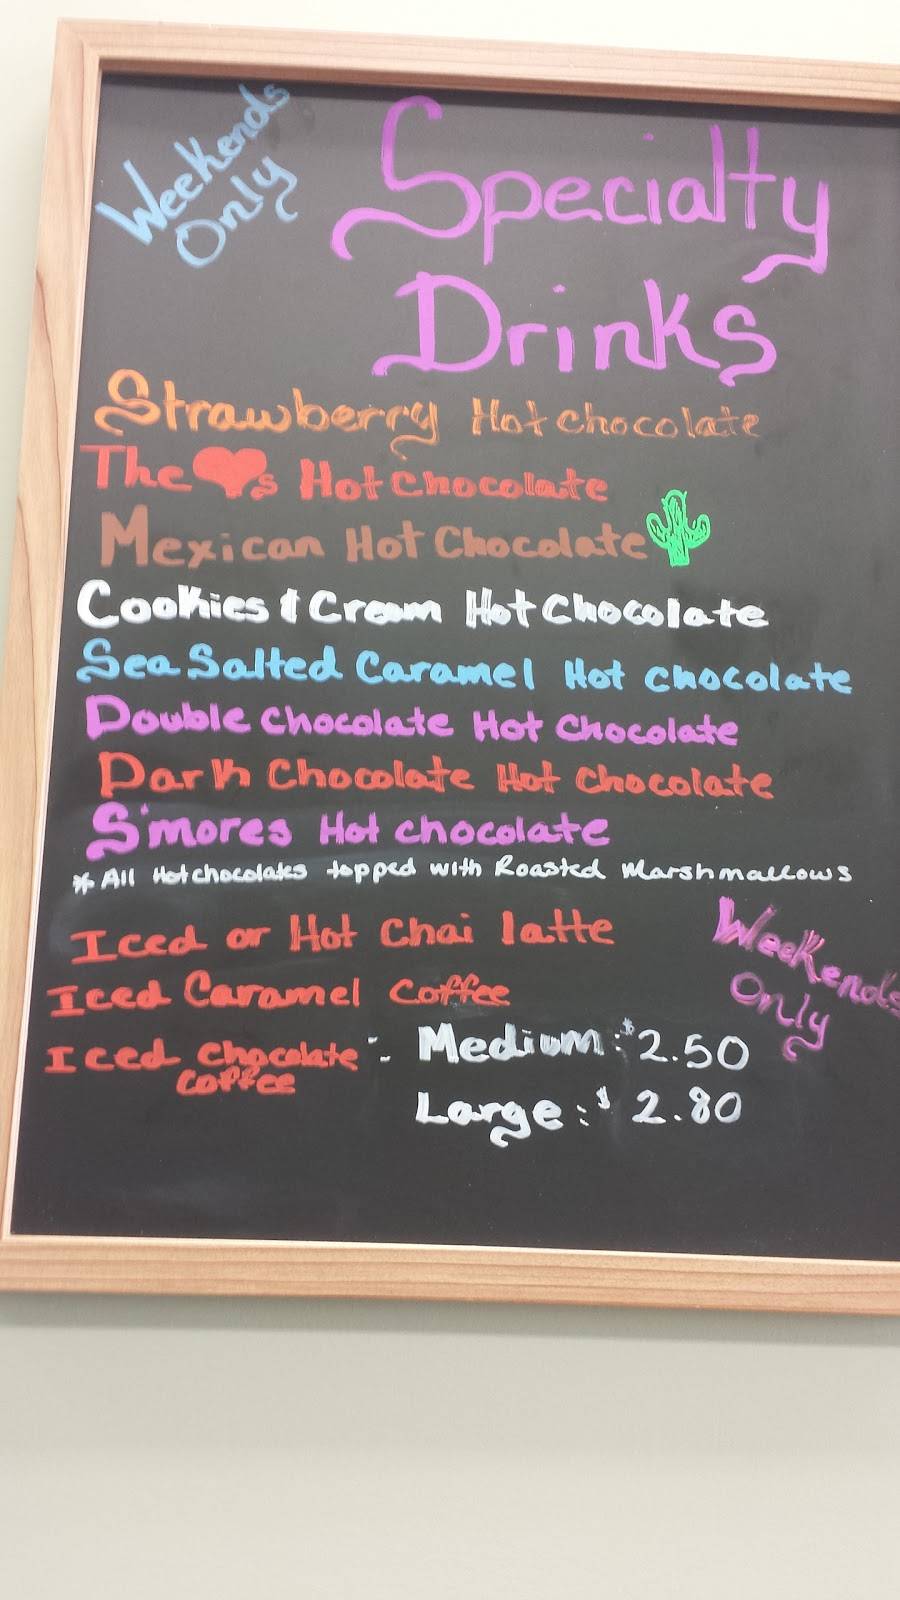 Weekends
Only
Specialty
Drinks
Strawberry Hot chocolate
The ❤s Hot Chocolate
Mexican Hot Chocolate
Cookies & Cream Hot Chocolate
Sea Salted Caramel Hot chocolate
Double Chocolate Hot Chocolate
Dark Chocolate Hot Chocolate
S'mores Hot chocolate
* All Hot chocolates topped with Roasted Marshmallows
Iced or Hot Chai latte
Weekends
Only
Iced Caramel Coffee
Iced Chocolate :- Medium: $2.50
Coffee
Large: $2.80